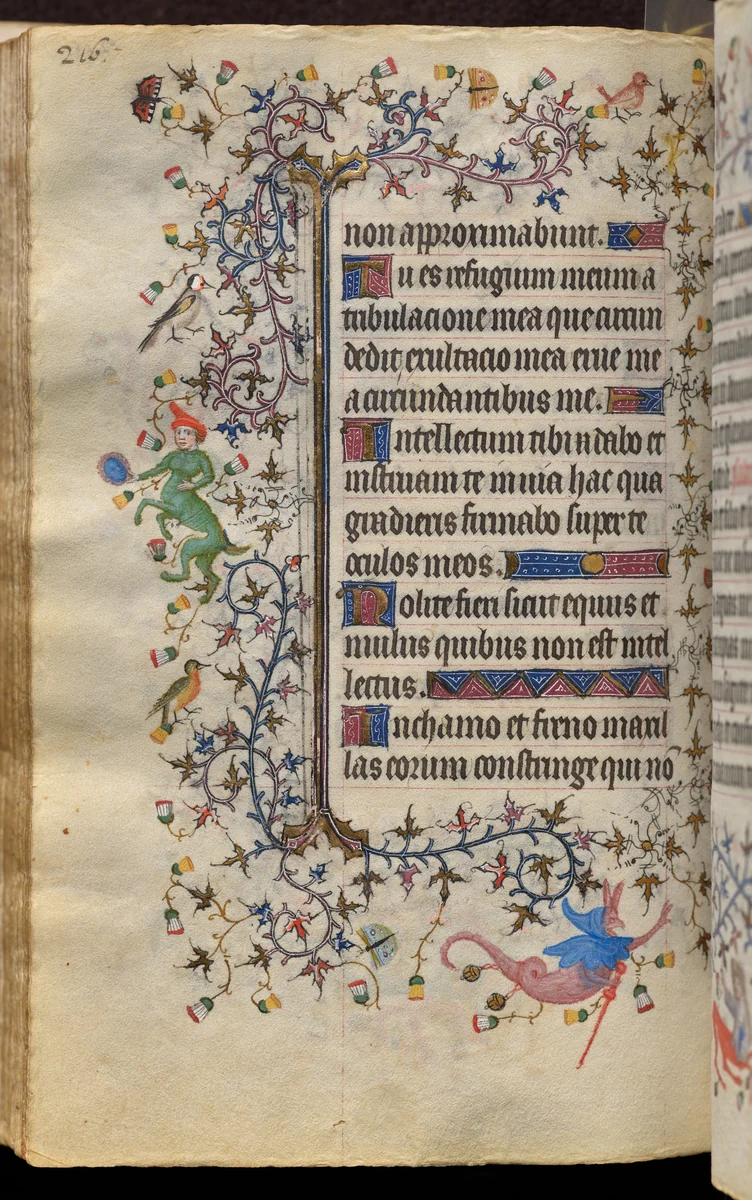 216
non approximabunt.
Tu es refugium meum a
tribulacione mea que circum
dedit exultacio mea erue me
a circumdantibus me.
Intellectum tibi dabo et
instruam te in uia hac qua
gradieris firmabo super te
oculos meos.
Nolite fieri sicut equus et
mulus quibus non est intel
lectus.
In chamo et freno maxil
las eorum constringe qui nō